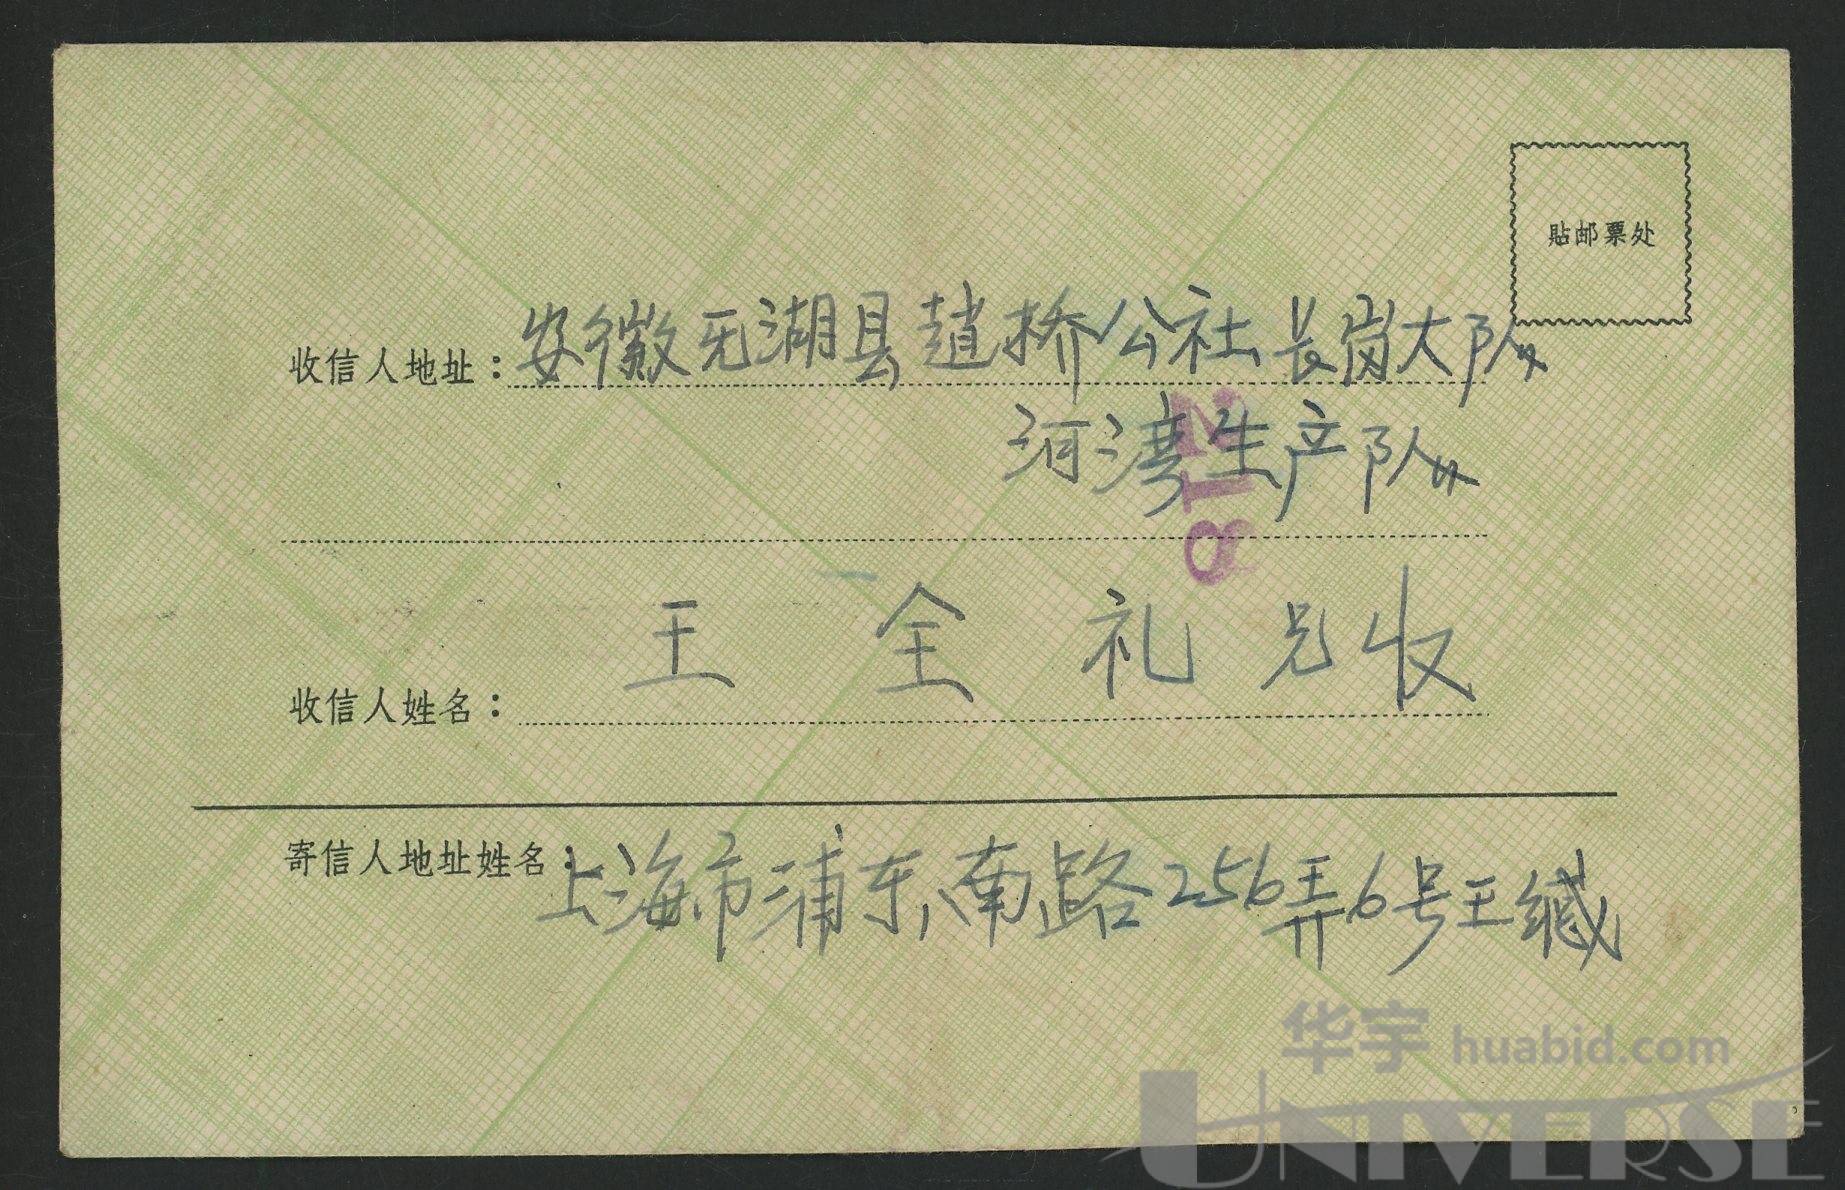 貼邮票处
收信人地址：安徽芜湖县趙桥公社长岗大队
河湾生产队
218
王全礼兄收
收信人姓名：
寄信人地址姓名：上海市浦东南路256弄6号王缄
华宇 huabid.com
UNIVERSE